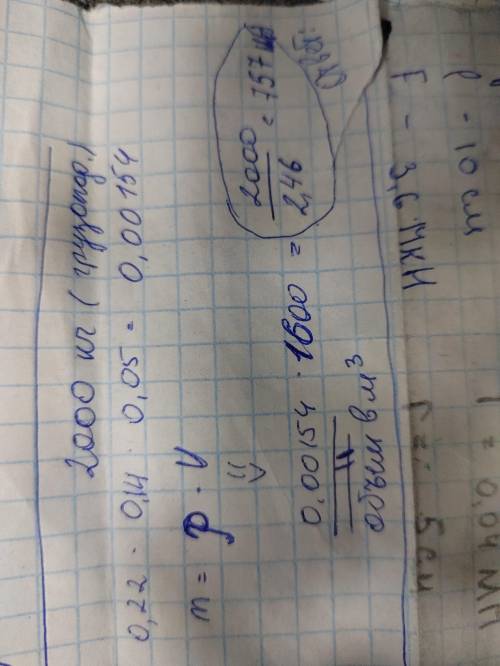 2000 кг (грузопод.)
0,22 · 0,14 · 0,05 = 0,00154
m = ρ · V
0,00154 · 1600 =
объем в м³
2000
2,46
= 757 шт
l - 10 см
F - 3,6 мкН
5 см
= 0,04 мН